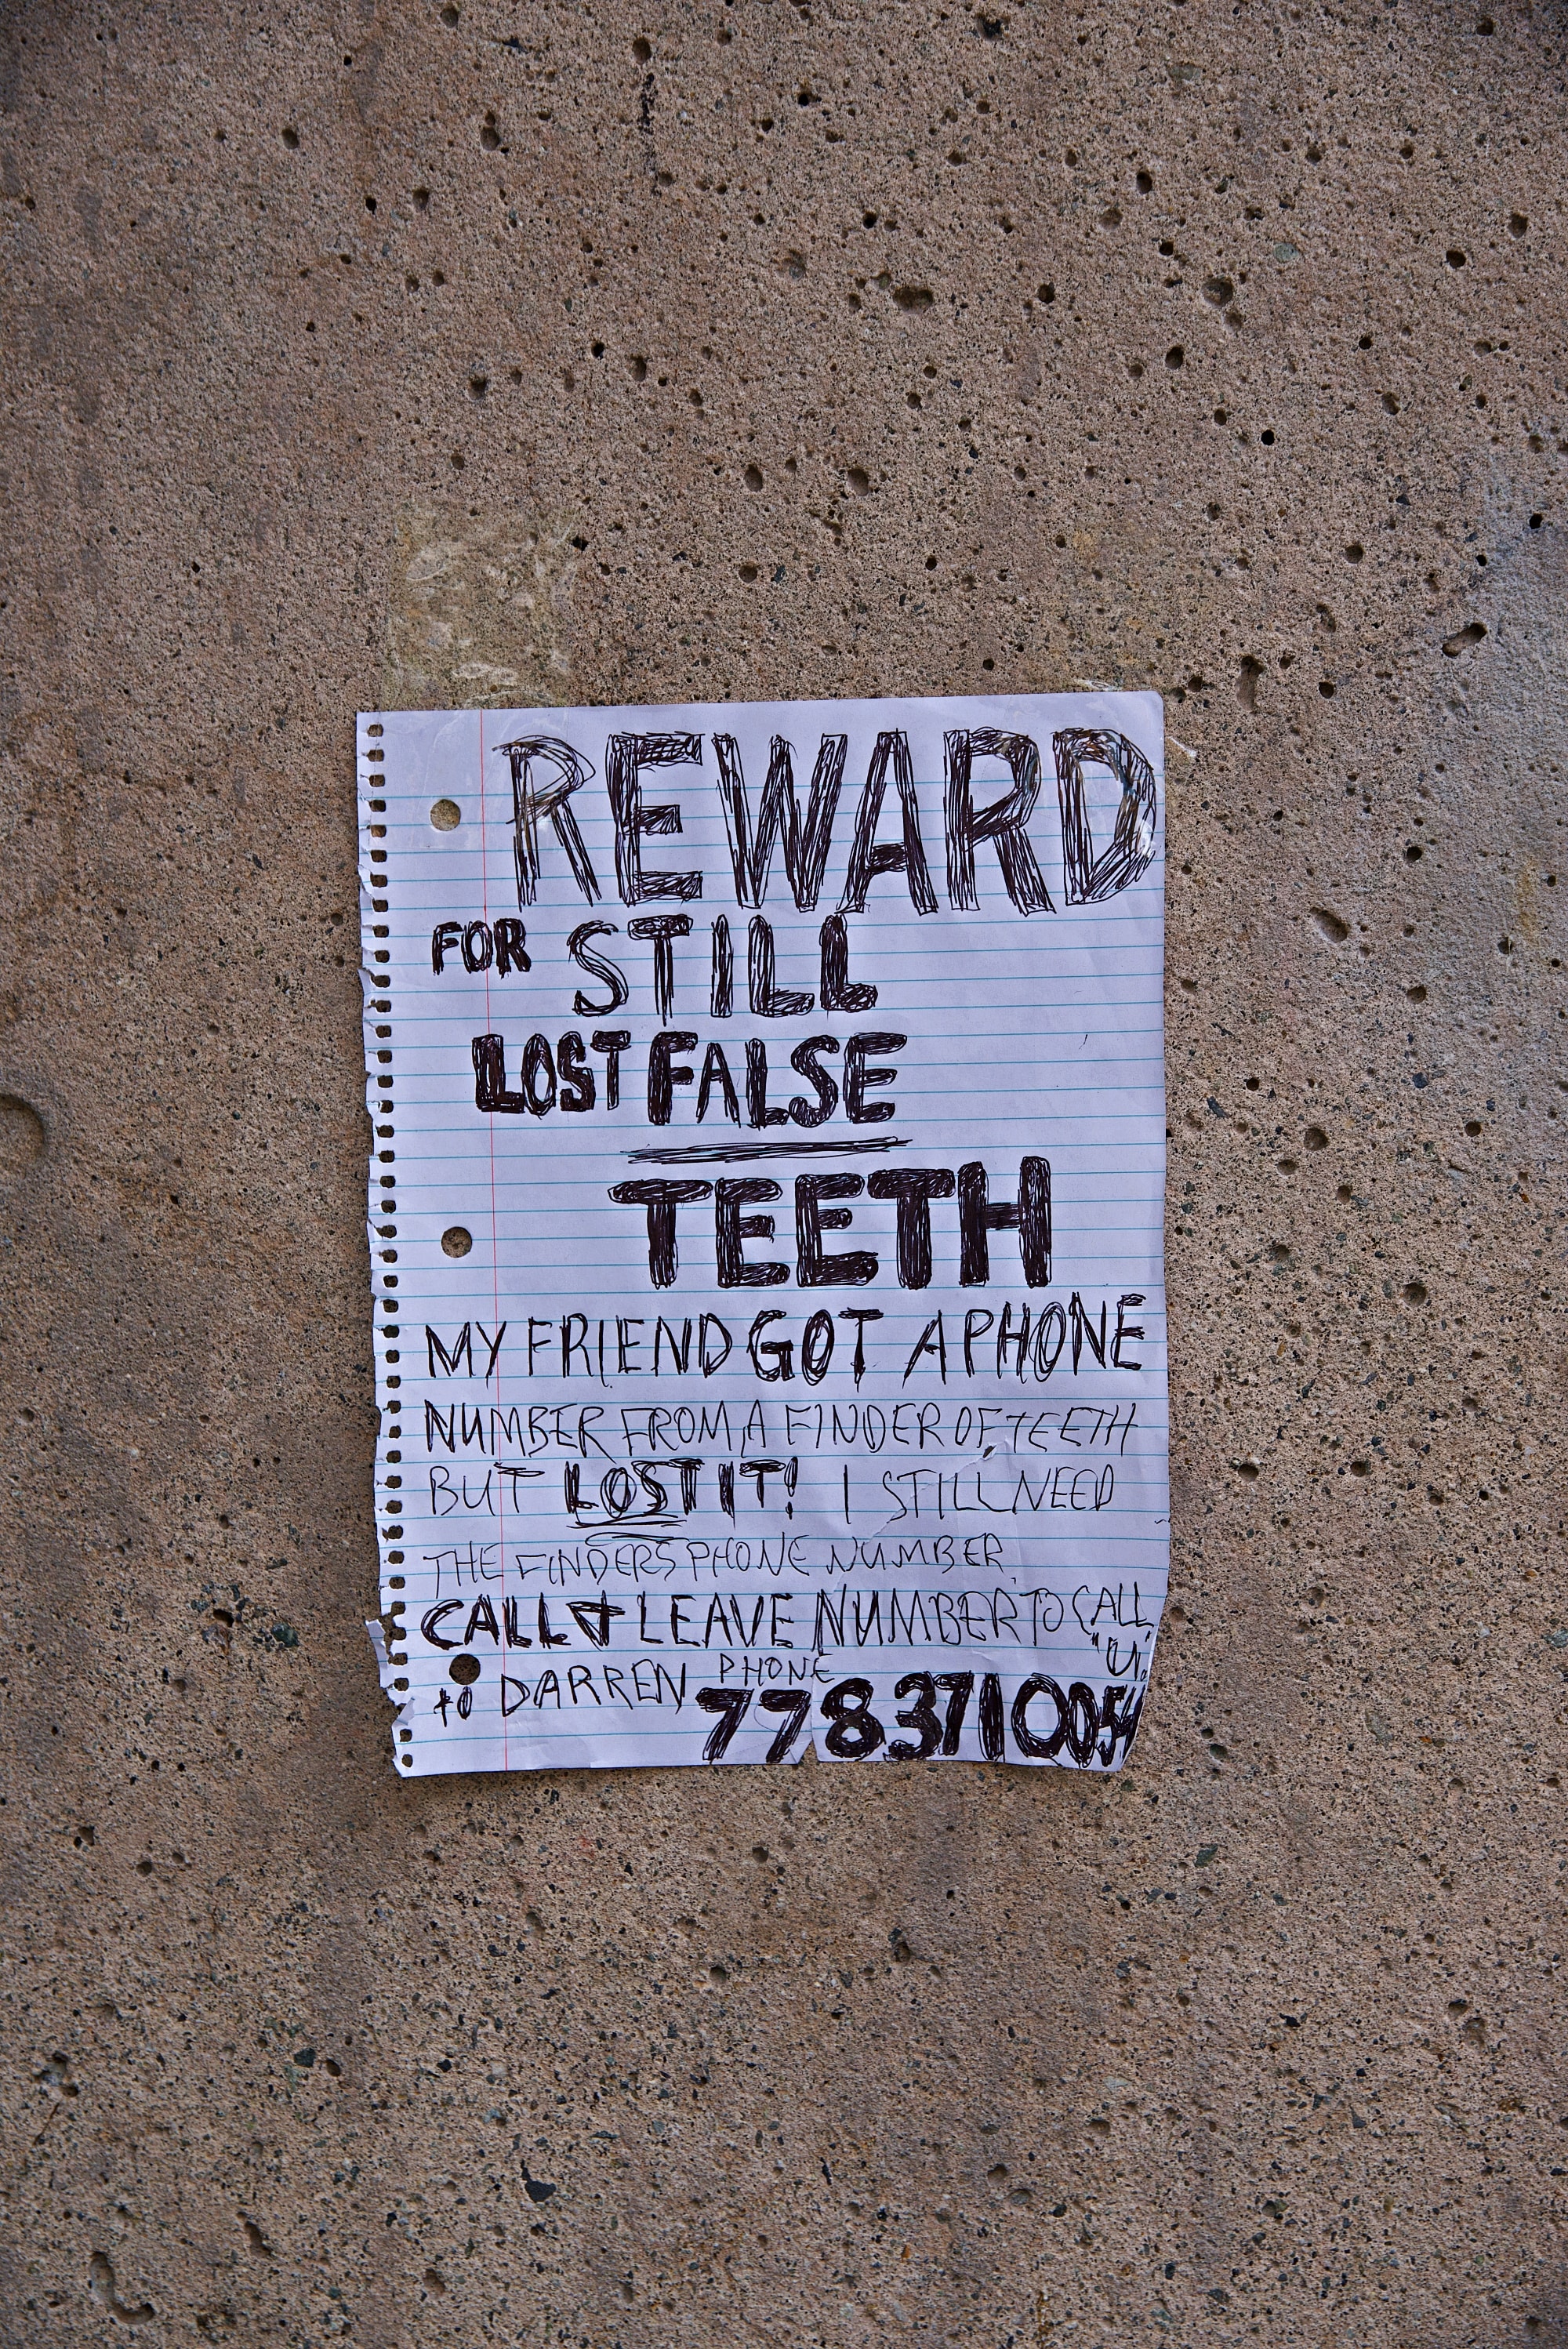 REWARD
FOR STILL
LOST FALSE
TEETH
MY FRIEND GOT A PHONE
NUMBER FROM A FINDER OF TEETH
BUT LOST IT! I STILL NEED
THE FINDERS PHONE NUMBER.
CALL & LEAVE NUMBER TO CALL
"U".
to DARREN PHONE
7783710054